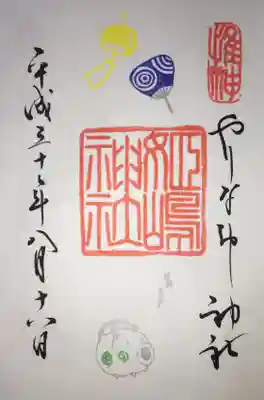 やりなおし神社
姫嶋神社
平成三十年八月十八日